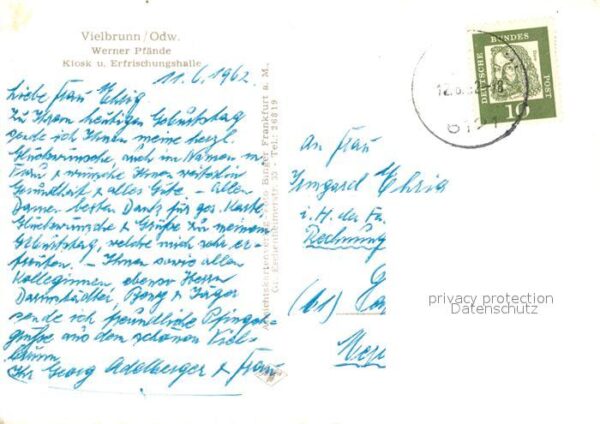 Vielbrunn/Odw.
Werner Pfände
Kiosk u. Erfrischungshalle
11.6.1962.
Liebe Frau Ehrig
Zu Ihrem heutigen Geburtstag
sende ich Ihnen meine herzl.
Glückwünsche, auch im Namen m.
Frau & wünsche Ihnen weiterhin
Gesundheit & alles Gute – Allen
Damen besten Dank für ges. Karte,
Glückwünsche & Grüße zu meinem
Geburtstag, welche mich sehr er-
freuten. – Ihnen sowie allen
Kolleginnen, ebenso Herrn
Darmstädter, Borg & Jäger
sende ich freundliche Pfingst-
grüße aus dem schönen Viel-
brunn
Ihr Georg Adelberger & Frau
Binger Frankfurt a. M.,
Gr. Eschenheimerstr. 35 - Tel.: 26819
DEUTSCHE
BUNDES
POST
10
12.6.62-18
6121
An Frau
Irmgard Ehrig
i. H. der Fa.
Rechnung
(61)
privacy protection
Datenschutz